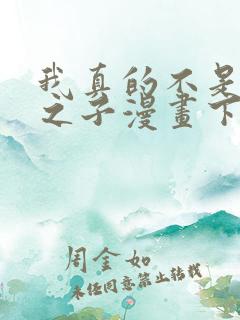 我真的不是
之子漫畫下
周金如
未经同意禁止转载